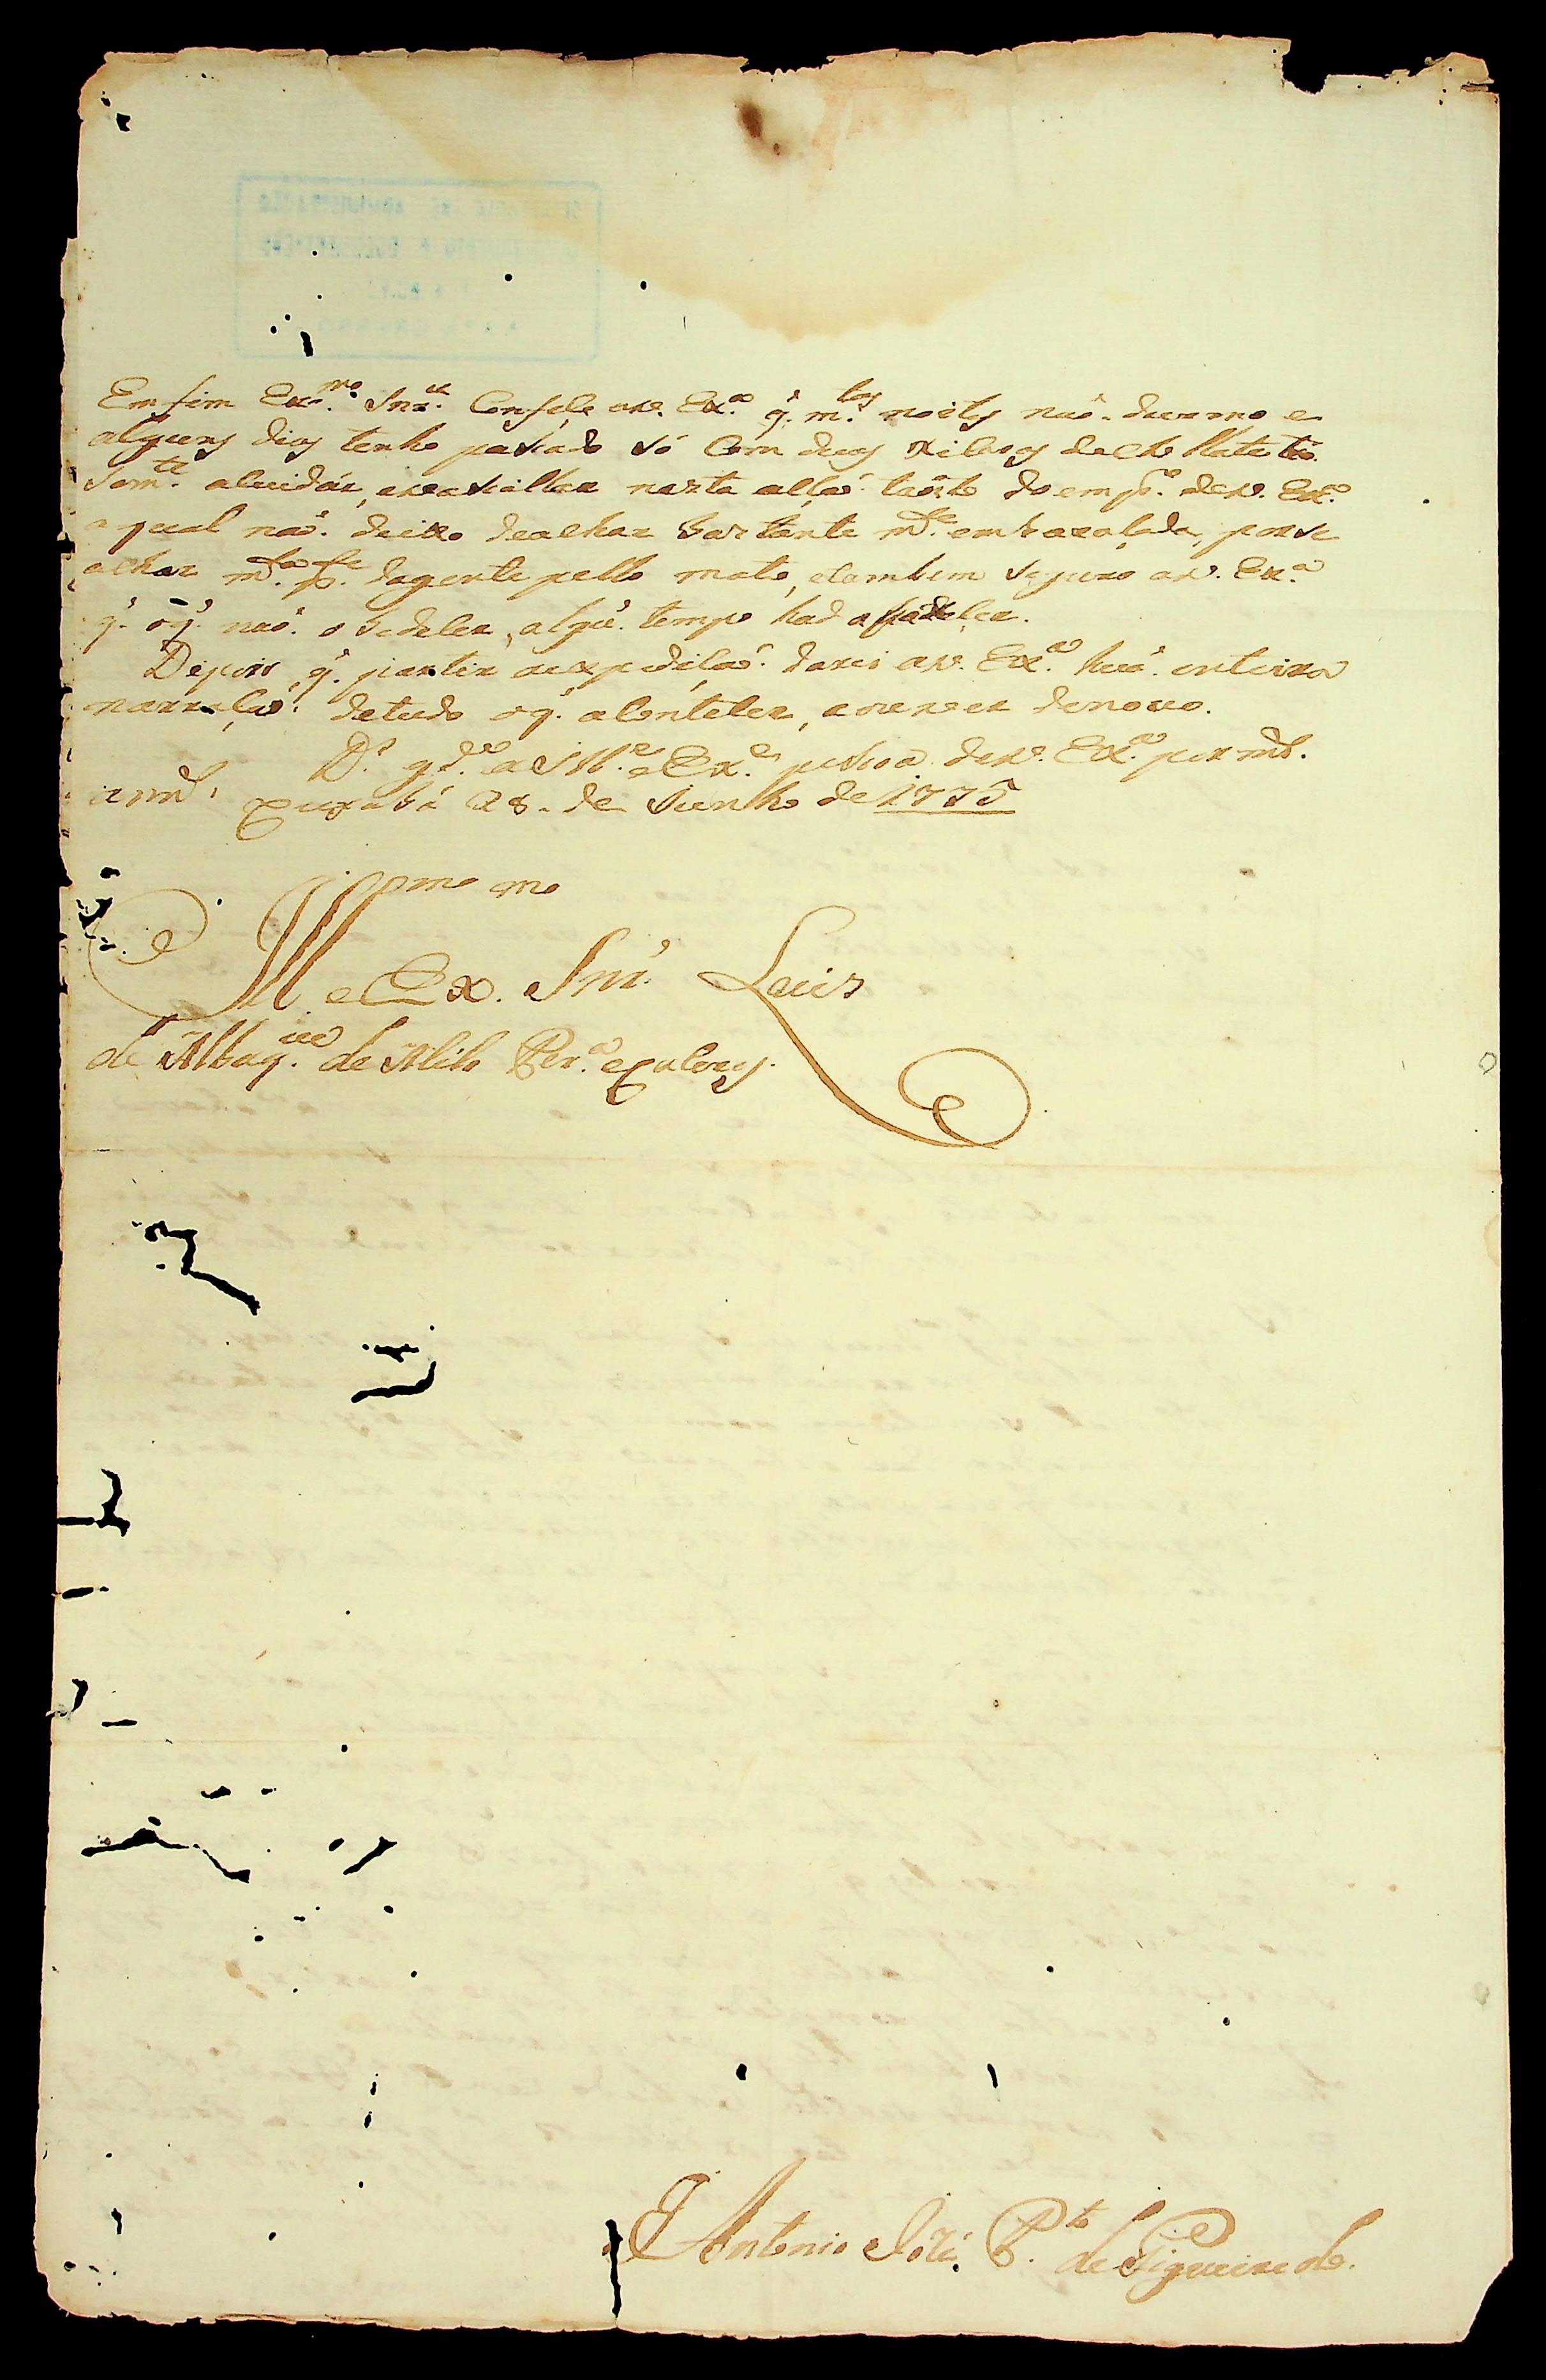 Em fim Ex.mo Snr.' Confeço a V. Ex.a q.' m.tas noites naõ durmo e
alguns dias tenho pasado só Com duas xicaras de cho Mate tão
Som.te a cuidár, e a vacillar nesta acçaõ tanto do emp.o de V. Ex.a
a qual naõ deixo de achar bastante m.to embaraçada, por se
achar m.ta p.te da gente pello mato, e tambem seguro a V. Ex.a
q.' o q.' naõ obedeçer, algũ tempo had a padeçer.
Depois q.' partir a expediçaõ darei a V. Ex.a huã enteira
narraçaõ de tudo o q.' aConteçer, a ver de novo.
D.s g.de a Ill.e e Ex.e pesoa de V. Ex.a por m.s
ann.s Cuyabá 28 de Junho de 1775
Ill.mo e Ex.mo Snr.' Luis
de Albuq.ue de Mello Per.a e Caceres.
Antonio José P.to de Figueiredo.